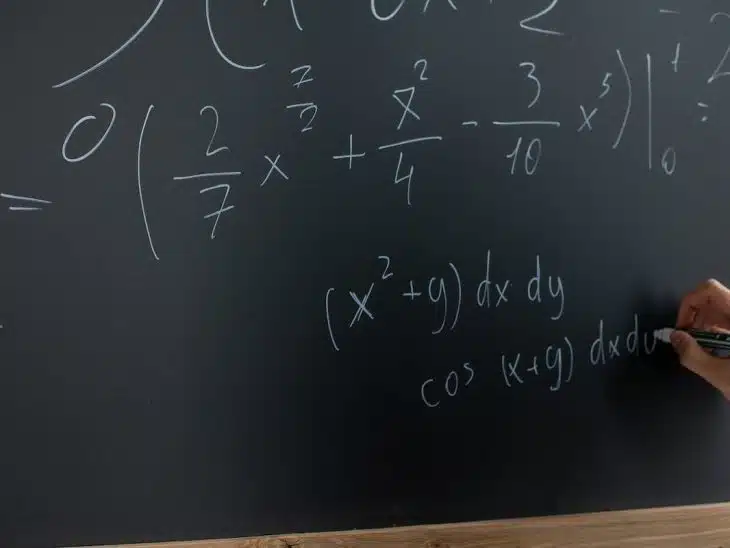 = 0 ( 2/7 x^7/2 + x^2/4 - 3/10 x^5 ) |_0^1 =
(x^2 + y) dx dy
cos (x+y) dx dy